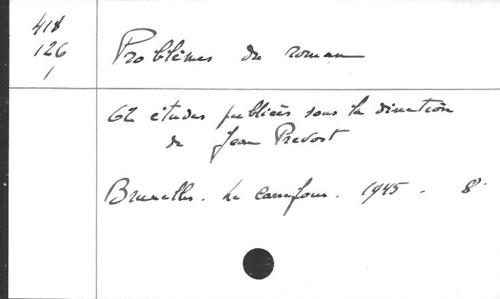 418
126
1
Problèmes du roman
62 études publiées sous la direction
de Jean Prévost
Bruxelles. Le carrefour. 1945. 8°